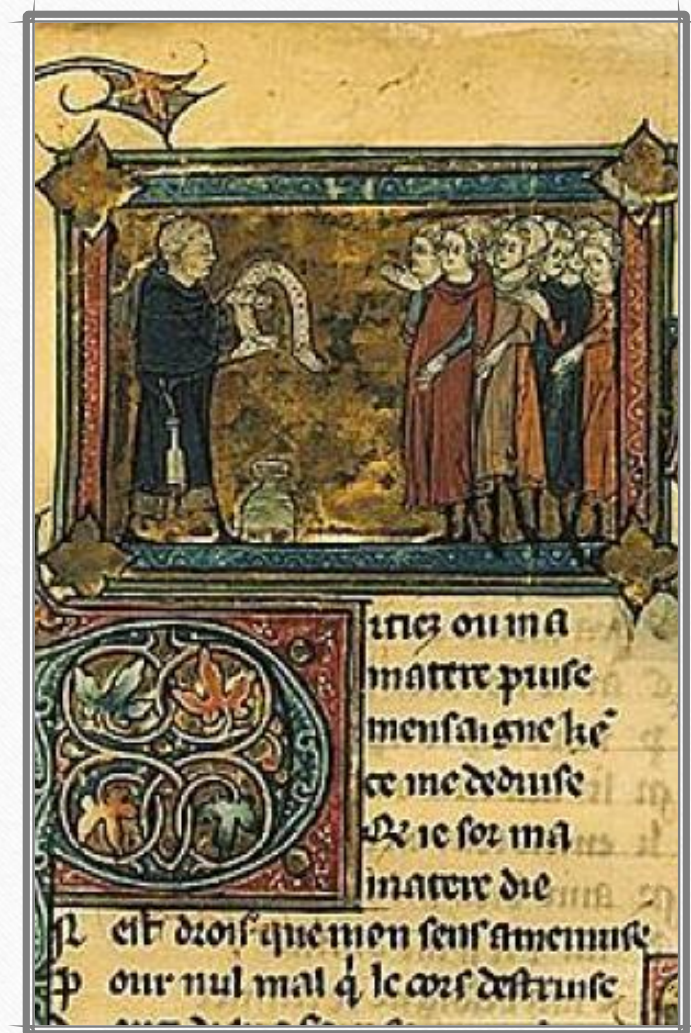 Pitiez ou ma
matere puise
mensaigne kē
ce me deduise
Q̃ ie sor ma
matere die
N est drois que men sens amenuise
P our nul mal q̇ le cors destruise